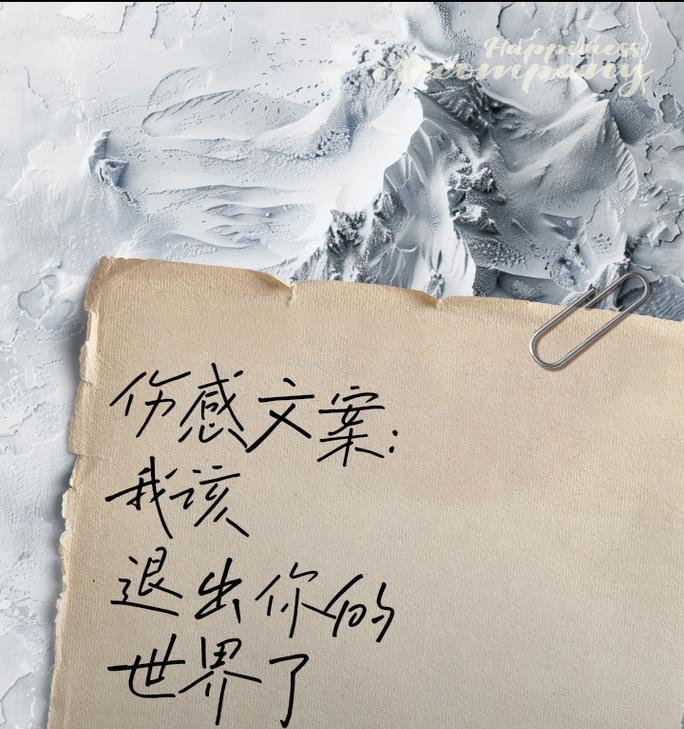 Happiness
Accompany
伤感文案:
我该
退出你的
世界了